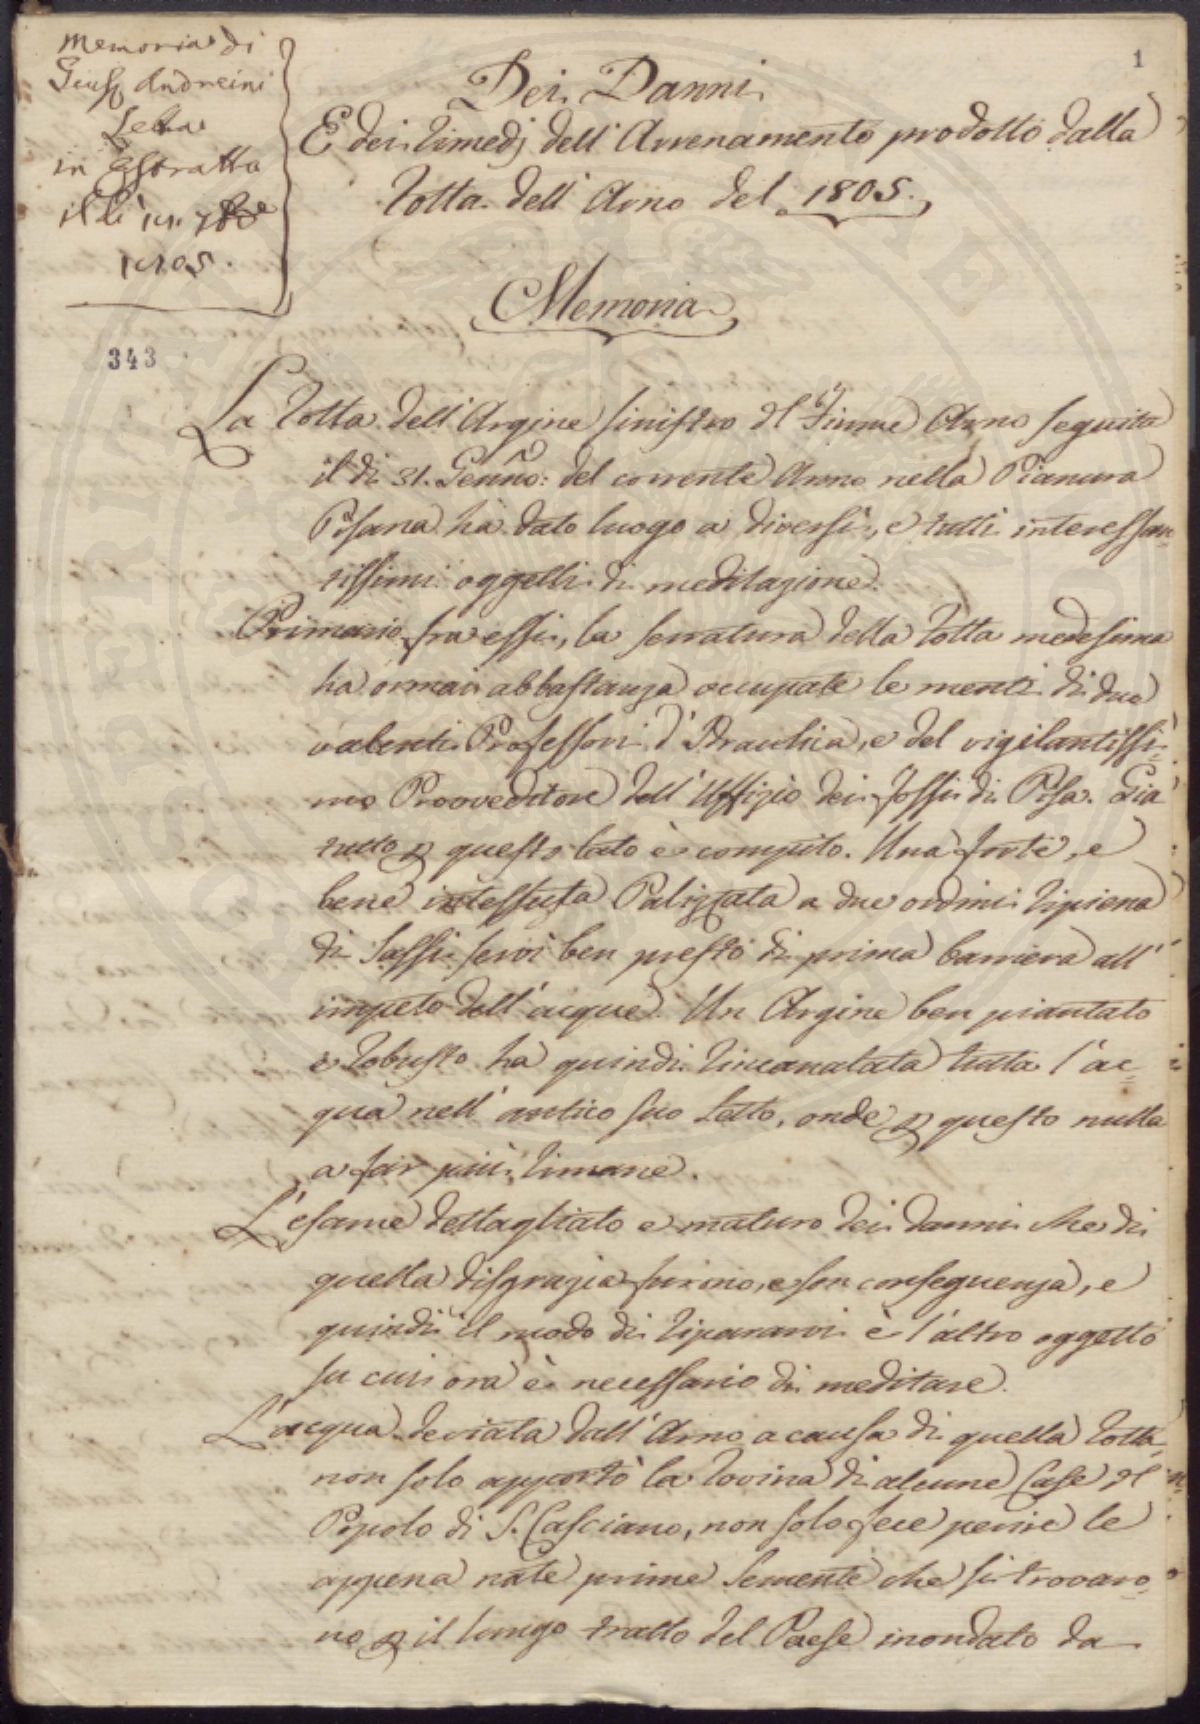 Memoria di
Giusᵉ Andreini
Letta
in Estratto
il dì 11. 7bre
1805.
1
Dei Danni
E dei rimedj dell' Arrenamento prodotto dalla
rotta dell' Arno del 1805.
Memoria
343
La rotta dell' Argine sinistro del Fiume Arno seguita
il dì 31. Genno: del corrente Anno nella Pianura
Pisana hà dato luogo a diversi, e tutti interessan=
tissimi oggetti di meditazione.
Primario fra essi, la serratura della rotta medesima
ha ormai abbastanza occupate le menti di due
valenti Professori d'Idraulica, e del vigilantissi=
mo Provveditore dell' Uffizio dei Fossi di Pisa. Già
tutto p questo lato è compito. Una forte, e
bene intessuta Palizzata a due ordini ripiena
di Sassi servì ben presto di prima barriera all'
impeto dell' acque. Un Argine ben piantato
e robusto ha quindi rincanalata tutta l'ac=
qua nell' antico suo Letto, onde p questo nulla
a far più rimane.
L'esame dettagliato e maturo dei danni che di
quella disgrazia furono, e son conseguenza, e
quindi il modo di ripararvi è l'altro oggetto
su cui ora è necessario di meditare.
L'acqua deviata dall' Arno a causa di quella rotta
non solo apportò la rovina di alcune Case del
Popolo di S. Casciano, non solo fece perire le
appena nate prime Sementi che si trovaro=
no p il lungo tratto del Paese inondato da